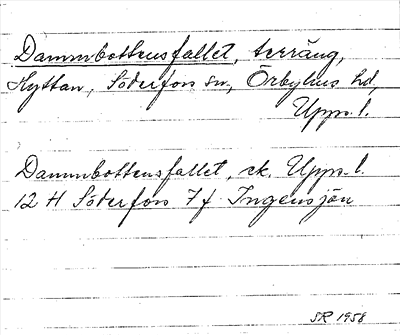 Dammbottensfallet, terräng,
Hyttan, Söderfors sn, Örbyhus hd,
Upps. l.
Dammbottensfallet, ek. Upps. l.
12 H Söderfors 7 f Ingensjön
SR 1958